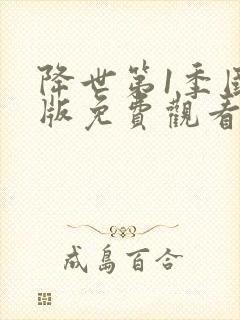 降世第1季
版免費觀看
成島百合